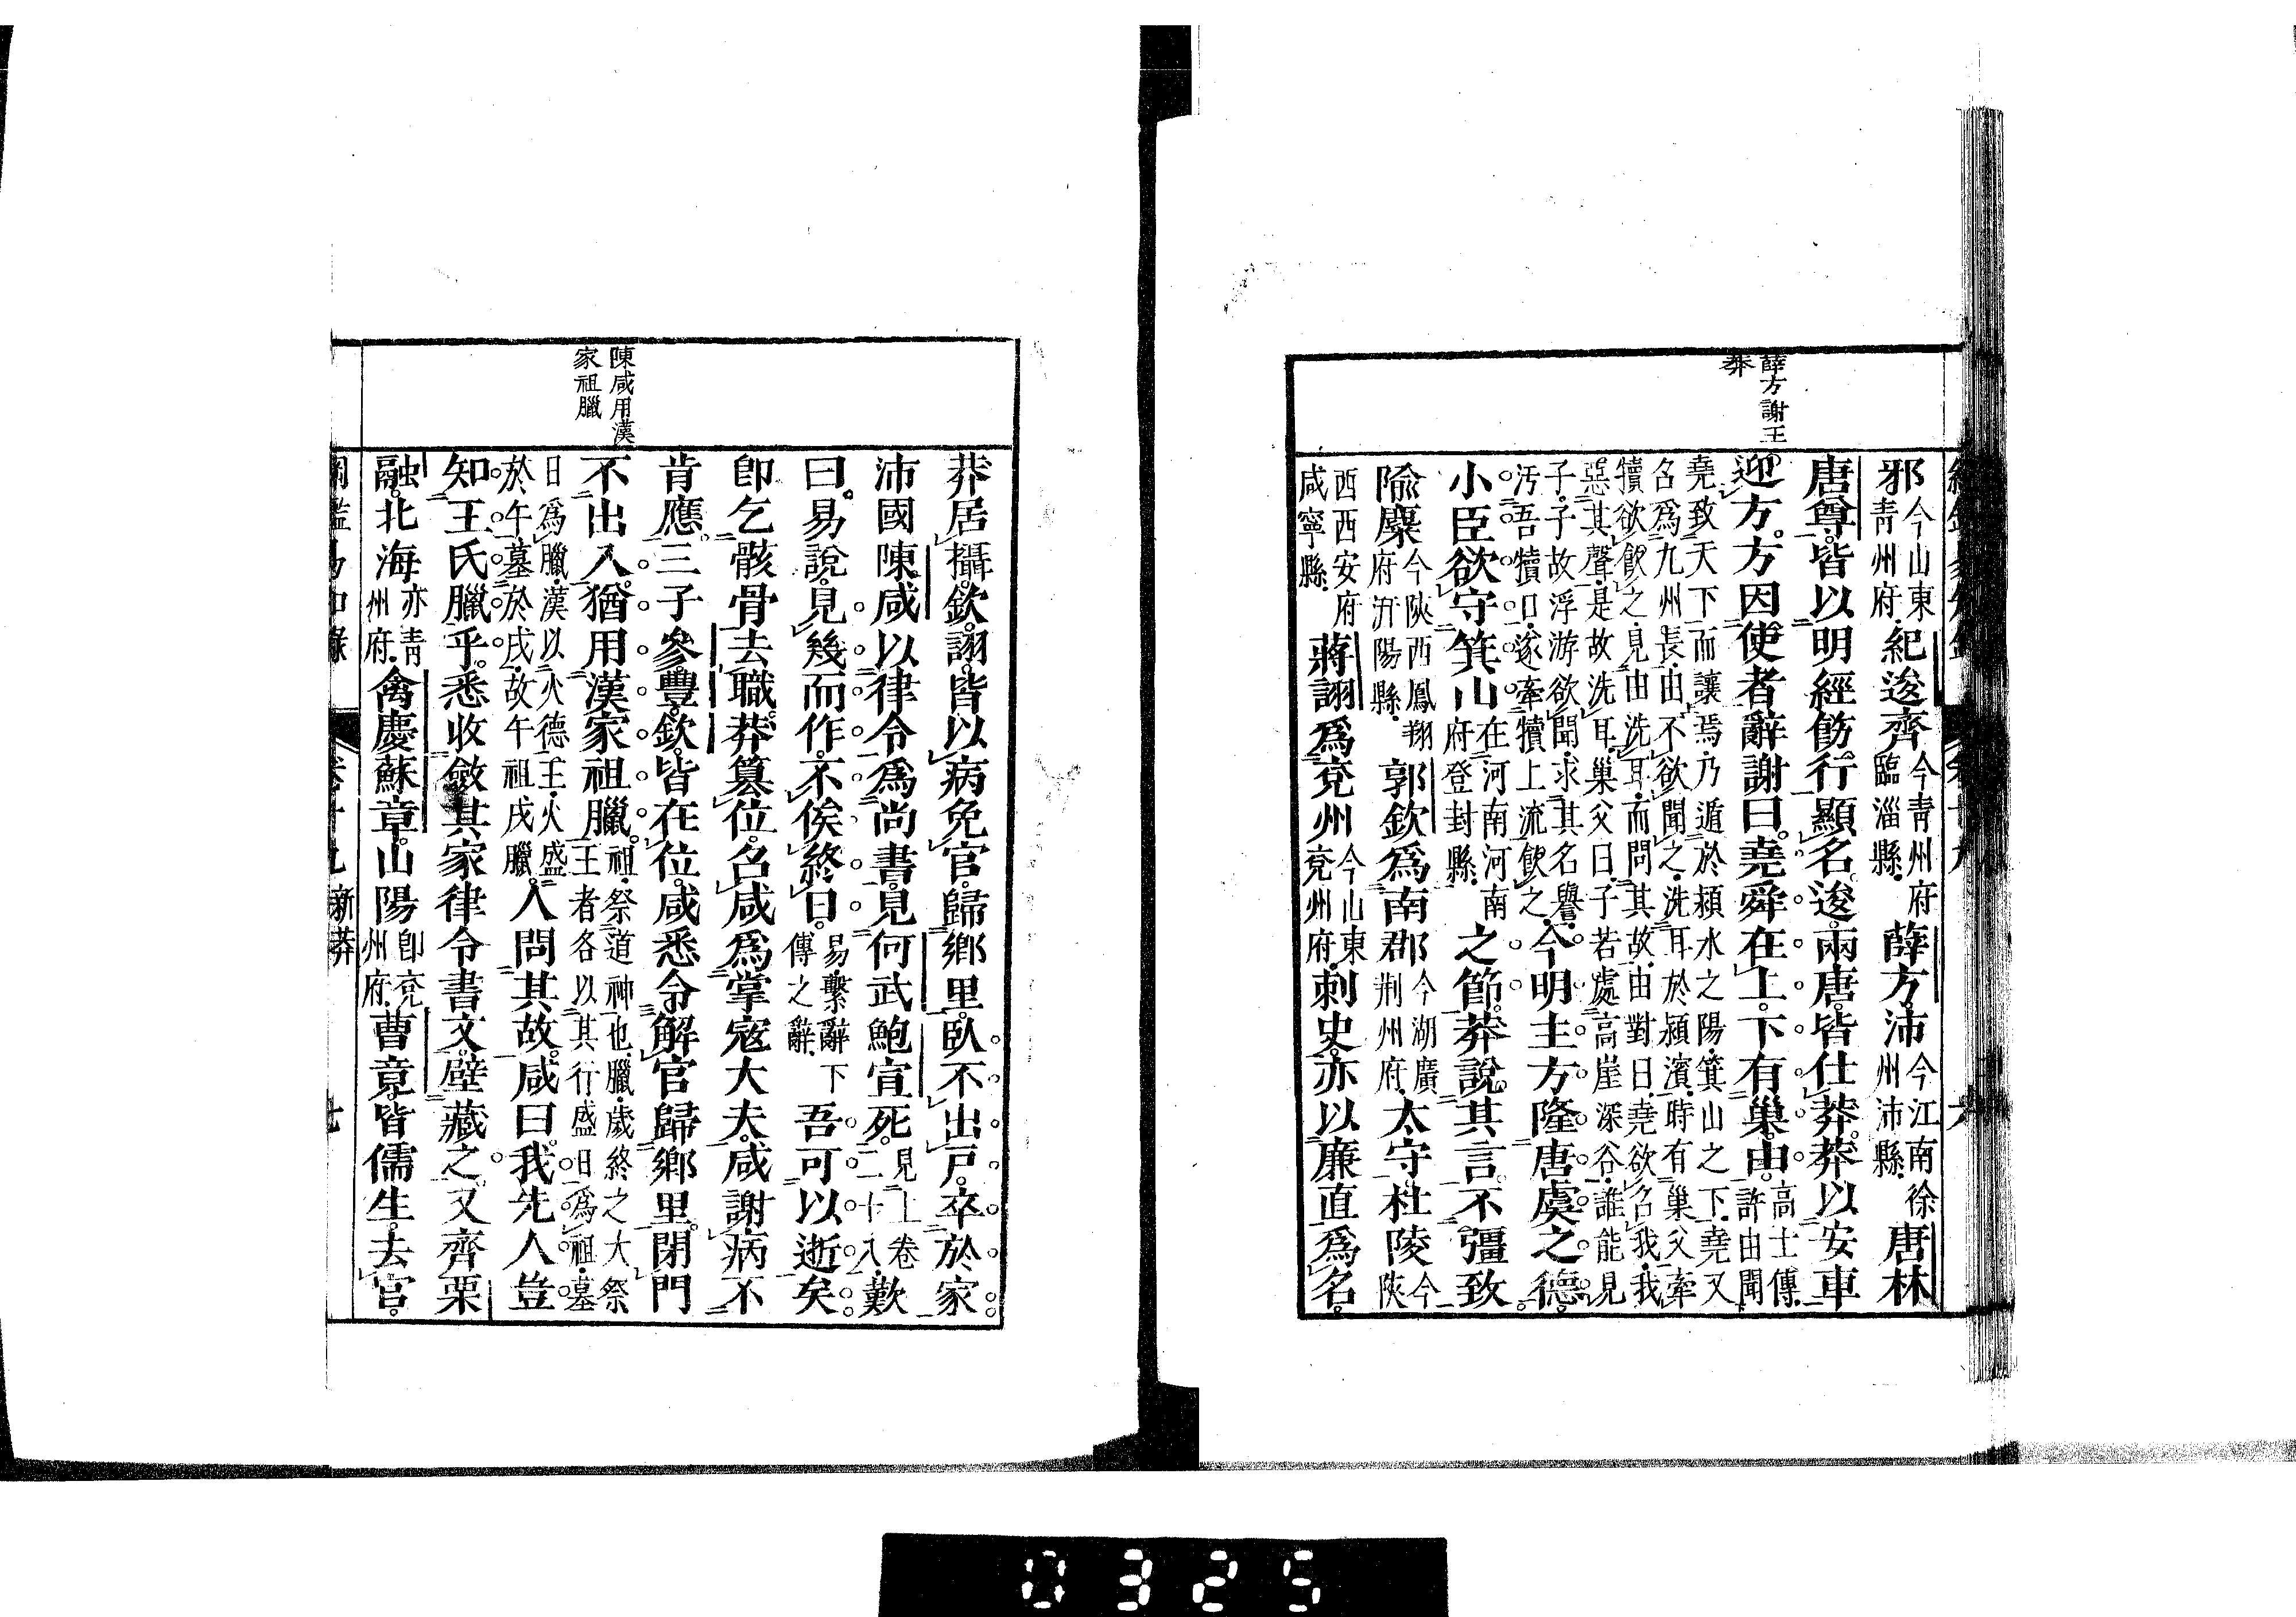 薛方謝王
莽
邪今山東青州府紀逡齊今青州府臨淄縣薛方沛今江南徐州沛縣唐林
唐尊皆以明經飭行顯名逡兩唐皆仕莽莽以安車
迎方方因使者辭謝曰堯舜在上下有巢由高士傳許由聞
堯致天下而讓焉乃遁於潁水之陽箕山之下堯又
召爲九州長由不欲聞之洗耳於潁濱時有巢父牽
犢欲飮之見由洗耳而問其故由對曰堯欲召我我
惡其聲是故洗耳巢父曰子若處高崖深谷誰能見
子子故浮游欲聞求其名譽
汚吾犢口遂牽犢上流飮之今明主方隆唐虞之德
小臣欲守箕山在河南河南府登封縣之節莽說其言不彊致
隃麋今陝西鳳翔府汧陽縣郭欽爲南郡今湖廣荆州府太守杜陵今陝
西西安府咸寧縣蔣詡爲兗州今山東兗州府刺史亦以廉直爲名
莽居攝欽詡皆以病免官歸鄉里臥不出戶卒於家
沛國陳咸以律令爲尚書見何武鮑宣死見上卷二十八歎
曰易說見幾而作不俟終日易繫辭下傳之辭吾可以逝矣
卽乞骸骨去職莽篡位召咸爲掌寇大夫咸謝病不
肯應三子參豐欽皆在位咸悉令解官歸鄉里閉門
陳咸用漢
家祖臘
不出入猶用漢家祖臘祖祭道神也臘歲終之大祭王者各以其行盛日爲祖墓
日爲臘漢以火德王火盛
於午墓於戌故午祖戌臘人問其故咸曰我先人豈
知王氏臘乎悉收斂其家律令書文壁藏之又齊栗
融北海亦靑州府禽慶蘇章山陽卽兗州府曹竟皆儒生去官
卷十九 新莽 七
0325